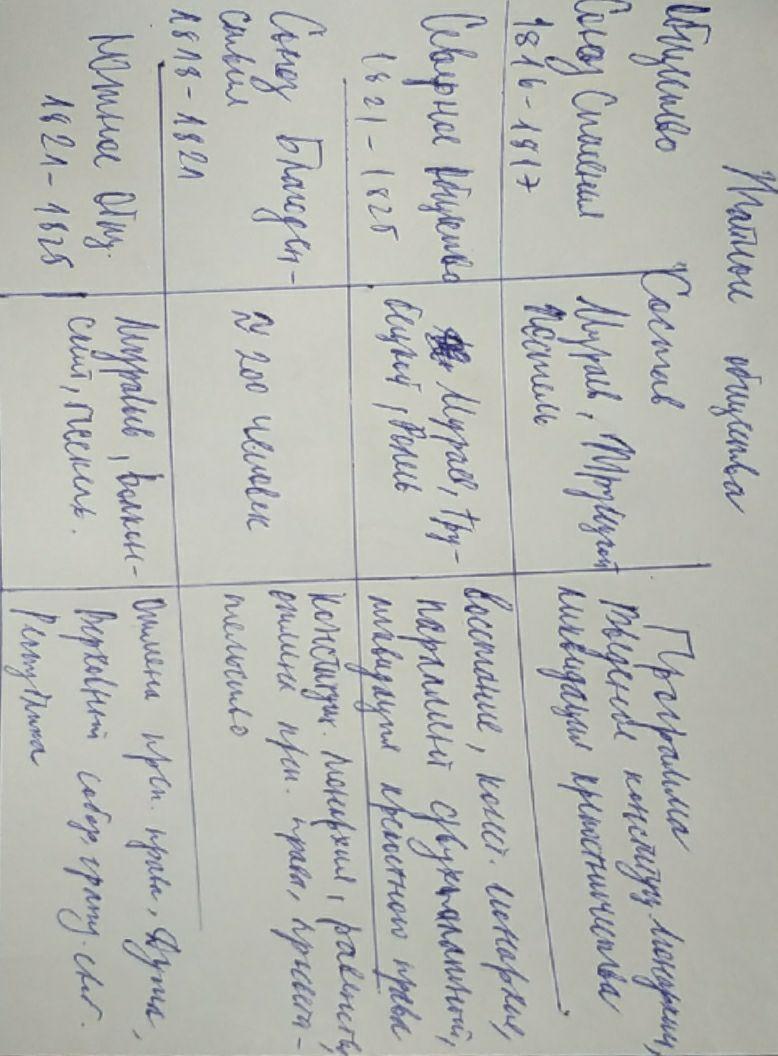 Тайные общества
Общество
Состав
Программа
Союз Спасения
1816-1817
Мурав, Трубецкой
Пестель
Введение конституц. монархии,
ликвидация крепостничества
Северное общество
1821-1825
Мурав, Тру-
бецкой, Рылеев
восстание, конст. монархия,
парламент двухпалатный,
ликвидация крепостного права
Союз Благоден-
ствия
1818-1821
≈ 200 человек
конституц. монархия, равенство,
отмена креп. права, правота-
тельство
Южное Общ.
1821-1825
Муравьёв, Волкон-
ский, Пестель.
Отмена креп. права, Дума,
Верховный собор, гражд. своб.
Республика